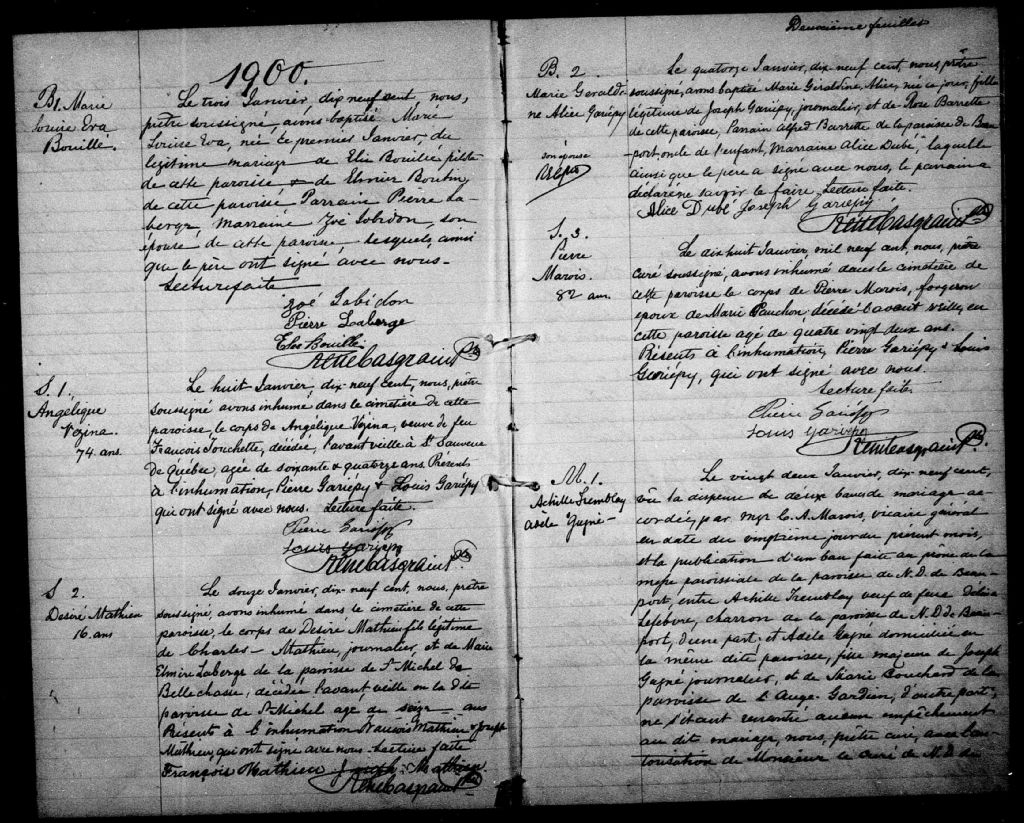 1900.
B1. Marie
Louise Eva
Bouillé.
Le trois Janvier, dix neuf cent, nous,
prêtre soussigné, avons baptisé Marie
Louise Eva, née le premier Janvier, du
légitime mariage de Elie Bouillé pilote
de cette paroisse, & de Elmire Boutin,
de cette paroisse Parrain Pierre La-
berge, Marraine Zoé Lobidon, son
épouse de cette paroisse, lesquels, ainsi
que le père ont signé avec nous.
Lecture faite
Zoé Labidon
Pierre Laberge
Elie Bouillé
René Casgrain Ptre
S. 1.
Angélique
Vézina.
74 ans.
Le huit Janvier, dix-neuf cent, nous, prêtre
soussigné avons inhumé dans le cimetière de cette
paroisse, le corps de Angélique Vézina, veuve de feu
François Touchette, décédée, l'avant veille à St Sauveur
de Québec, agée de soixante & quatorze ans. Présents
à l'inhumation, Pierre Gariépy & Louis Gariépy
qui ont signé avec nous. Lecture faite.
Pierre Gariépy
Louis Gariépy
René Casgrain Ptre
S 2.
Desiré Mathieu
16 ans
Le douze Janvier, dix-neuf cent, nous, prêtre
soussigné, avons inhumé dans le cimetière de cette
paroisse, le corps de Désiré Mathieu fils légitime
de Charles Mathieu, journalier, et de Marie
Elmire Laberge de la paroisse de St Michel de
Bellechasse, décédée l'avant veille en la dite
paroisse de St Michel age de seize ans
Présents à l'inhumation François Mathieu & Joseph
Mathieu, qui ont signé avec nous. Lecture faite
François Mathieu Joseph Mathieu
René Casgrain Ptre
Deuxième feuillet
B. 2
Marie Geraldi-
ne Alice Gariépy
son épouse
Le quatorze Janvier, dix-neuf cent, nous prêtre
soussigné, avons baptisé Marie Géraldine, Alice, née ce jour, fille
légitime de Joseph Gariépy, journalier, et de Rose Barrette
de cette paroisse, Parrain Alfred Barrette de la paroisse de Beau-
port, oncle de l'enfant, Marraine Alice Dubé, laquelle
ainsi que le père a signé avec nous, le parrain a
déclaré ne savoir le faire. Lecture faite.
Alice Dubé Joseph Gariépy
René Casgrain Ptre
S. 3.
Pierre
Marois.
82 ans.
Le dix huit Janvier, mil neuf cent, nous, prêtre
curé soussigné, avons inhumé dans le cimetière de
cette paroisse le corps de Pierre Marois, forgeron
époux de Marie Pauchon, décédé l'avant veille, en
cette paroisse agé de quatre vingt deux ans.
Présents à l'inhumation, Pierre Gariépy & Louis
Gariépy, qui ont signé avec nous.
Lecture faite.
Pierre Gariépy
Louis Gariépy
René Casgrain Ptre.
M. 1.
Achille Tremblay
Adèle Gagné
Le vingt deux Janvier, dix-neuf cent,
vu la dispense de deux bans de mariage ac-
cordée, par Mgr C. A. Marois, vicaire général
en date du vingtième jour du présent mois,
et la publication d'un ban faite au prône de la
messe paroissiale de la paroisse de N. D. de Beau-
port, entre Achille Tremblay veuf de feue
Lefebvre, charron de la paroisse de N. D de Beau-
port, d'une part; et Adèle Gagné domiciliée en
la même dite paroisse, fille majeure de Joseph
Gagné journalier, et de Marie Bouchard de la
paroisse de L'Ange-Gardien, d'autre part;
ne s'étant rencontré aucun empêchement
au dit mariage, nous, prêtre curé, avec l'au-
torisation de Monsieur le curé de N. D. de